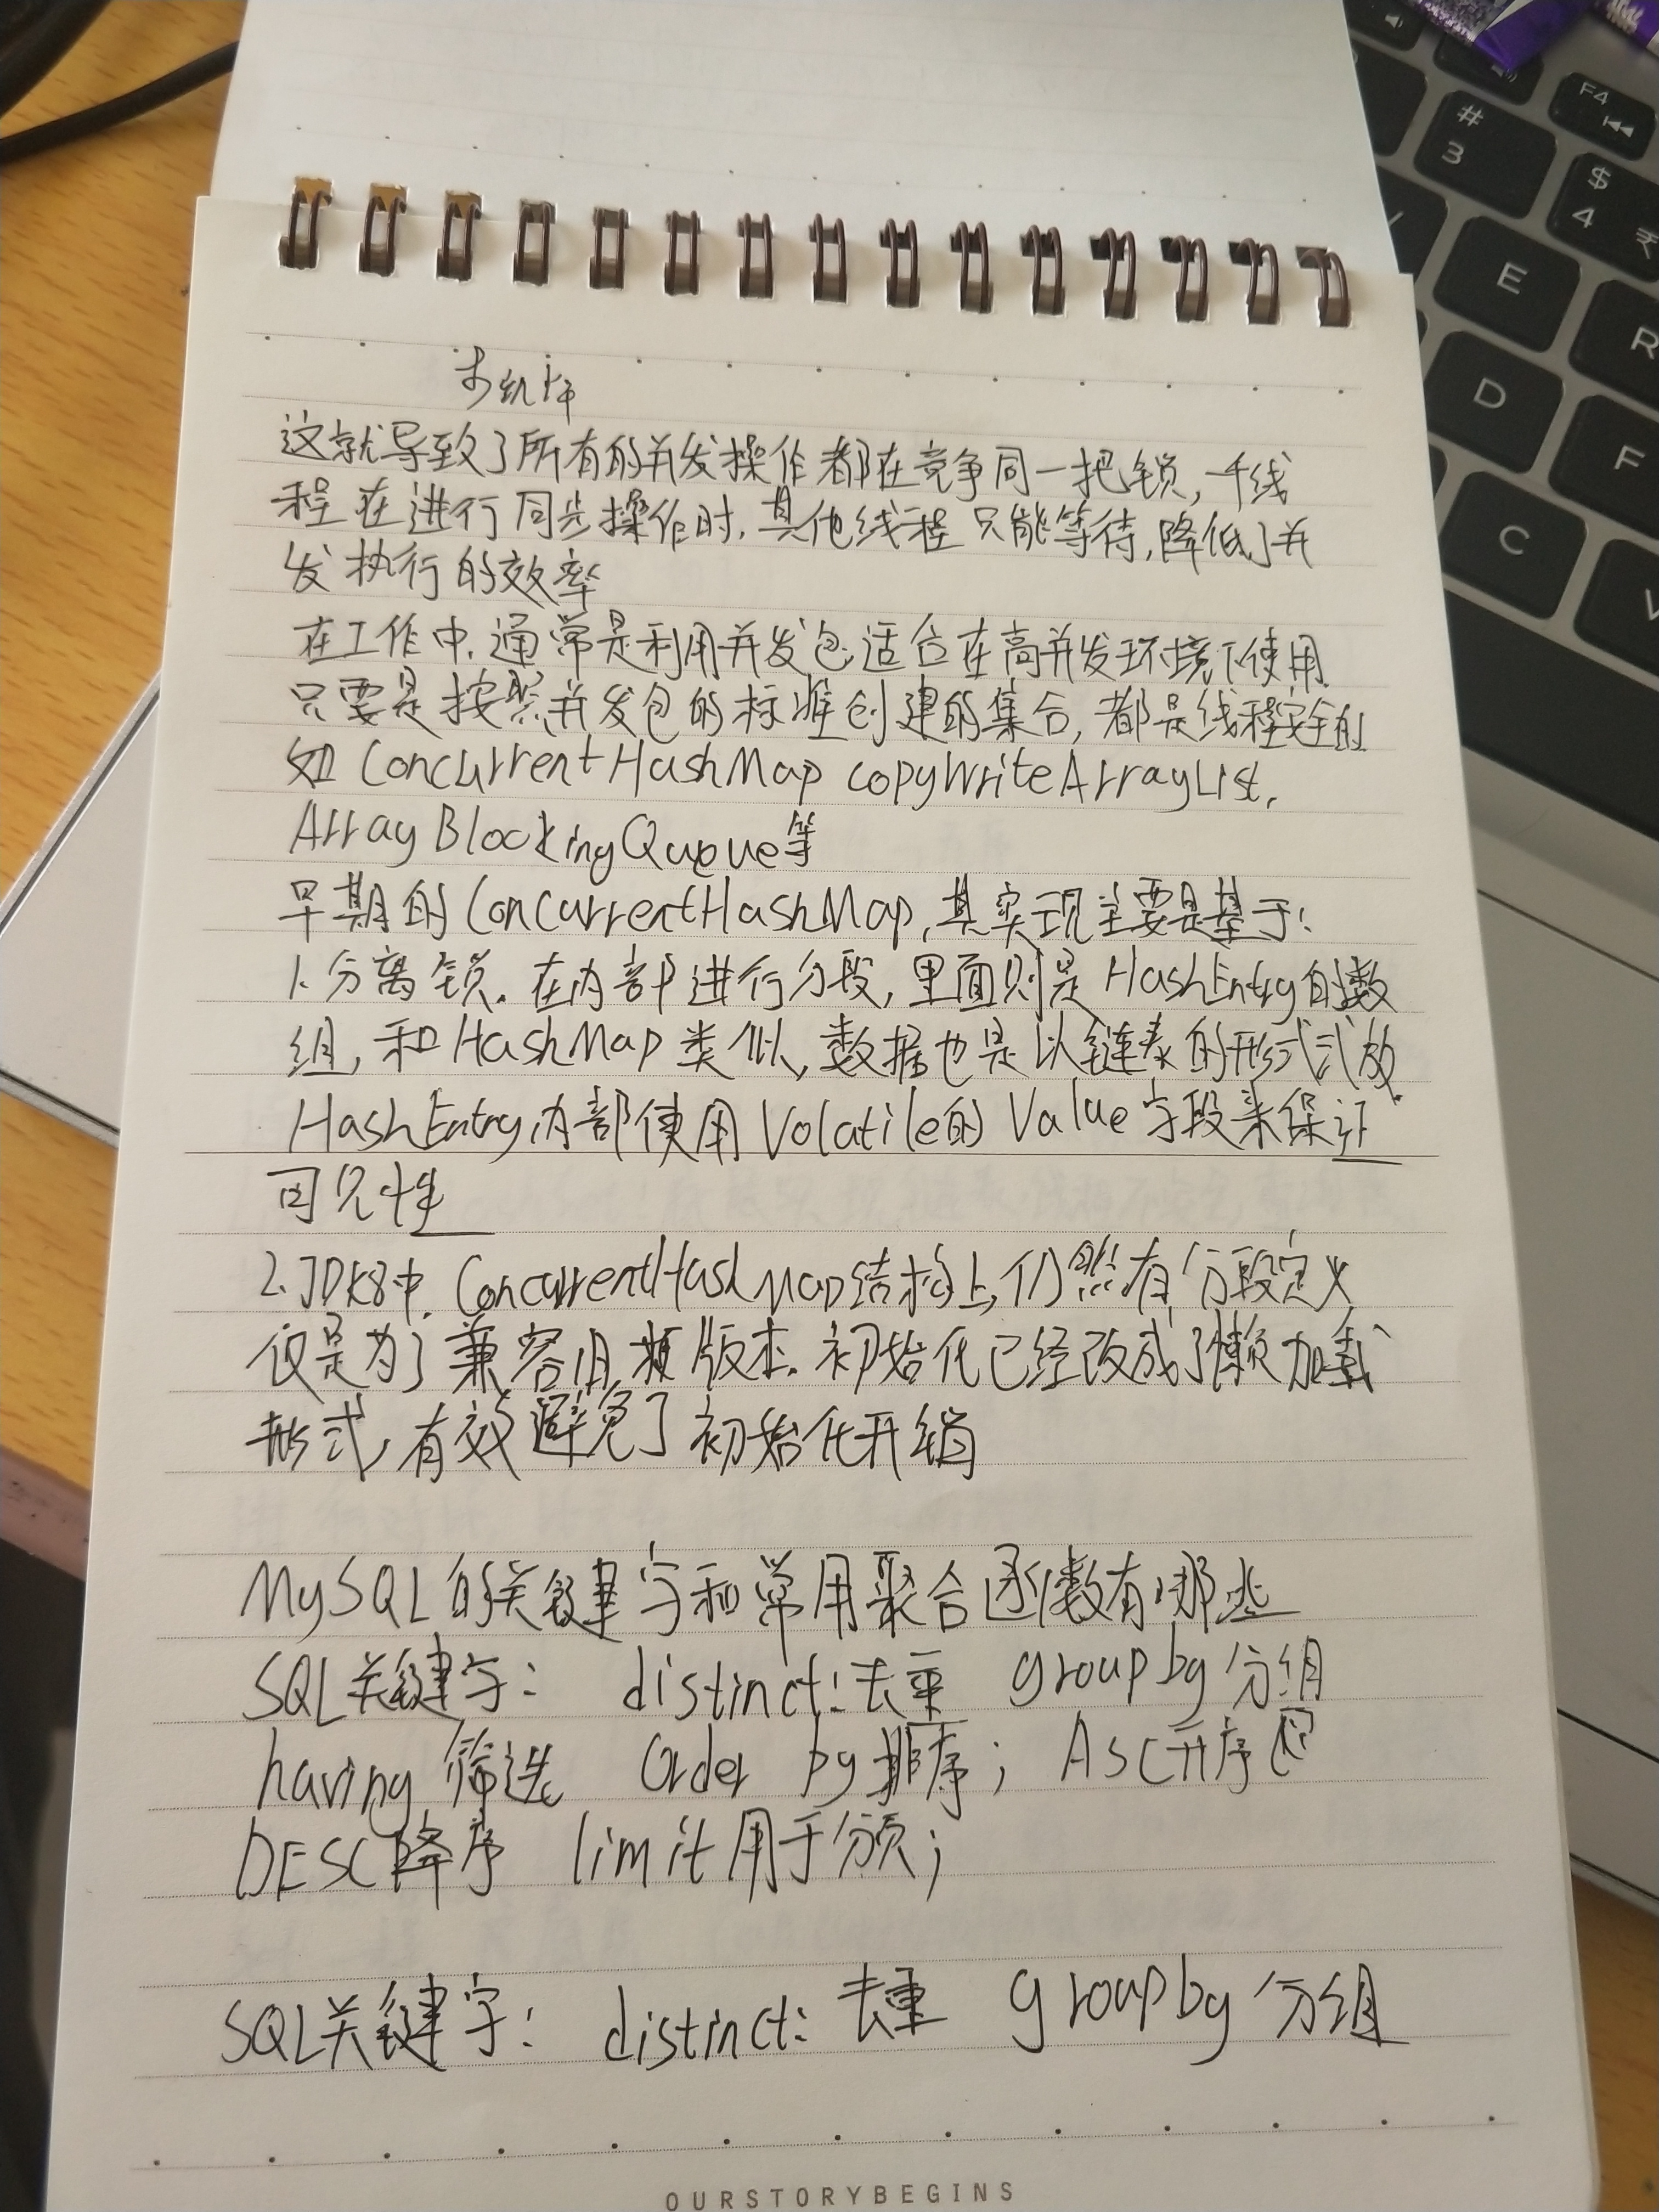 这就导致了所有的并发操作都在竞争同一把锁,一个线
程在进行同步操作时,其他线程只能等待,降低了并
发执行的效率
在工作中,通常是利用并发包适合在高并发环境下使用
只要是按照并发包的标准创建的集合,都是线程安全的
如 ConcurrentHashMap copyWriteArrayList,
ArrayBlockingQueue等
早期的ConcurrentHashMap,其实现主要是基于:
1.分离锁,在内部进行分段,里面则是HashEntry的数
组,和HashMap类似,数据也是以链表的形式式放
HashEntry内部使用Volatile的Value字段来保证
可见性
2.JDK8中,ConcurrentHashMap结构上,仍然有分段定义
仅是为了兼容旧版本,初始化已经改成了懒加载
形式,有效避免了初始化开销
MySQL的关键字和常用聚合函数有哪些
SQL关键字: distinct:去重 group by 分组
having 筛选 Order by 排序; ASC升序
DESC降序 limit用于分页;
SQL关键字: distinct: 去重 group by 分组
OURSTORYBEGINS
# 3
$ 4
₹
F4
E
R
D
F
C
V